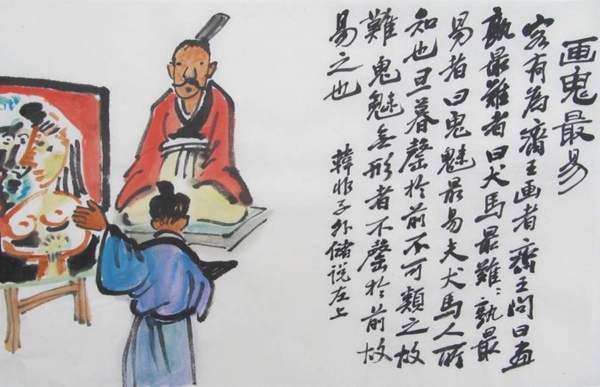 画鬼最易
客有为齊王画者齊王问曰画
孰最難者曰犬馬最難〻孰最
易者曰鬼魅最易夫犬馬人所
知也旦暮罄於前不可類之故
難鬼魅無形者不罄於前故
易之也
韓非子外储说左上